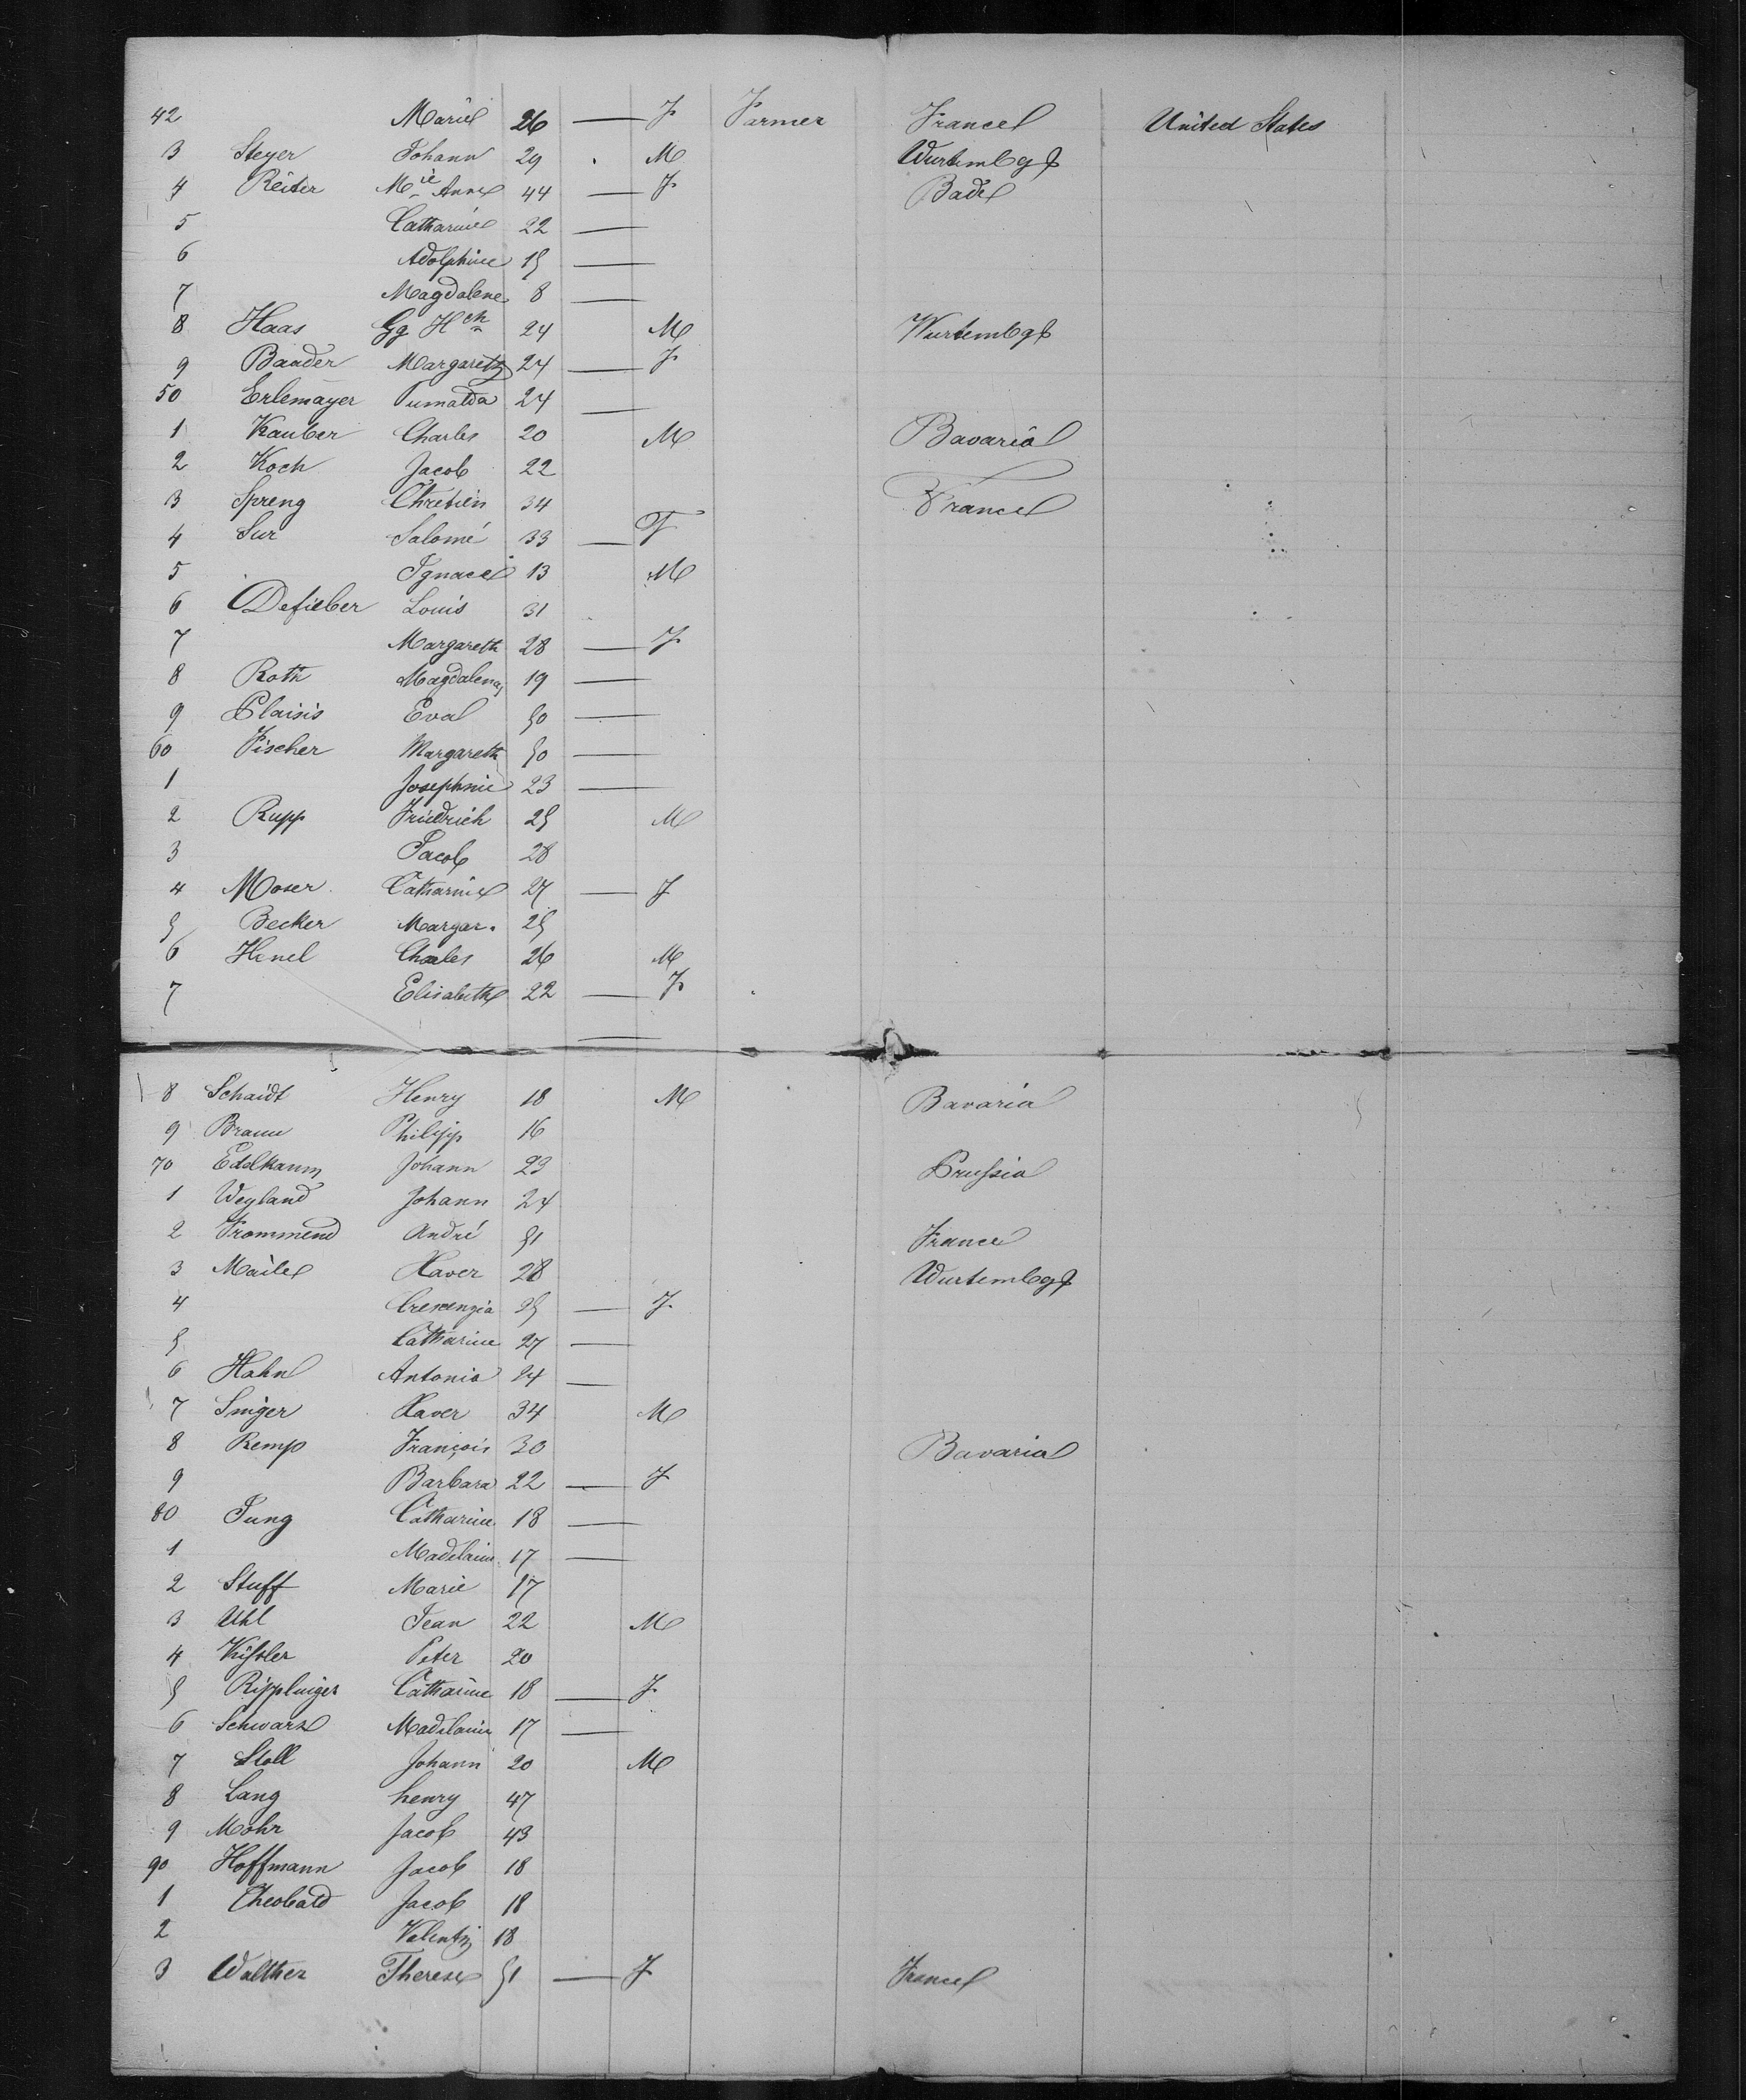 42 Marie 26 — F Farmer France United States
3 Steyer Johann 29 . M Wurtembg
4 Reiter Mie Anne 44 — F Bade
5 Catharine 22 —
6 Adolphine 15 —
7 Magdalene 8 —
8 Haas Gg Hch 24 M Wurtembg
9 Baader Margareth 24 — F
50 Erlemayer 24 —
1 Kauber Charles 20 M Bavaria
2 Koch Jacob 22
3 Spreng Chretien 34 France
4 Sur Salomé 33 — F
5 Ignace 13 M
6 Defieber Louis 31
7 Margareth 28 — F
8 Roth Magdalena 19 —
9 Plaisis Eva 50 —
60 Fischer Margareth 50 —
1 Josephine 23 —
2 Rupp Friedrich 25 M
3 Jacob 28
4 Moser Catharine 27 — F
5 Becker Margar. 25
6 Henel Charles 26 M
7 Elisabeth 22 — F
—
8 Schaidt Henry 18 M Bavaria
9 Braun Philipp 16
70 Edelkaum Johann 23 Prussia
1 Weyland Johann 24
2 Frommend André 51 France
3 Maile Xaver 28 Wurtembg
4 Crescenzia 25 — F.
5 Catharine 27 —
6 Hahn Antonia 24 —
7 Singer Xaver 34 M
8 Remp François 30 Bavaria
9 Barbara 22 — F
80 Jung Catharine 18 —
1 Madelaine 17 —
2 Stuff Marie 17
3 Uhl Jean 22 M
4 Kissler Peter 20
5 Ripplinger Catharine 18 — F
6 Schwarz Madelaine 17 —
7 Stoll Johann 20 M
8 Lang henry 47
9 Mohr Jacob 43
90 Hoffmann Jacob 18
1 Theobald Jacob 18
2 Valentin 18
3 Walther Therese 51 — F France